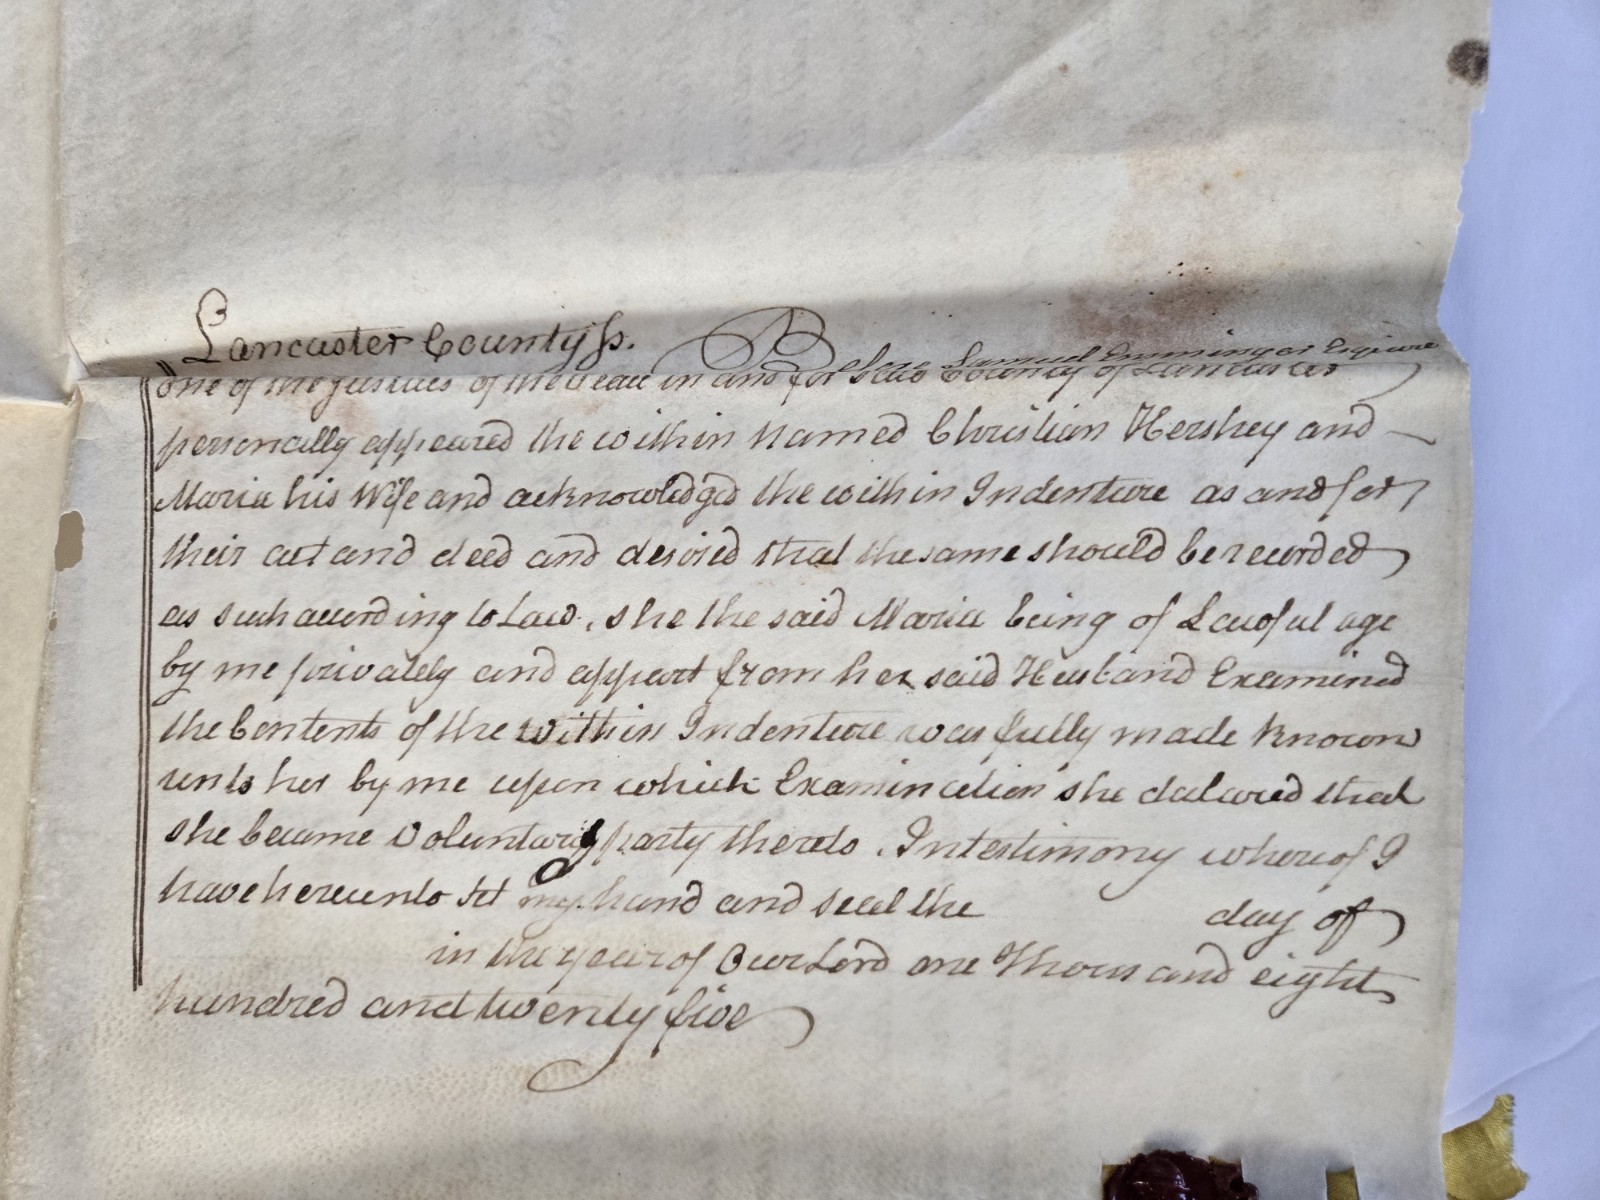 Lancaster County ss.
Before Samuel Emminger Esquire
one of the justices of the Peace in and for said County of Lancaster
personally appeared the within named Christian Hershey and
Maria his Wife and acknowledged the within Indenture as and for
their act and deed and desired that the same should be recorded
as such according to Law, she the said Maria being of Lawful age
by me privately and appart from her said Husband Examined
the Contents of the within Indenture was fully made known
unto her by me upon which Examination she declared that
she became voluntary party thereto. In testimony whereof I
have hereunto set my hand and seal the day of
in the year of Our Lord one Thousand eight
hundred and twenty five